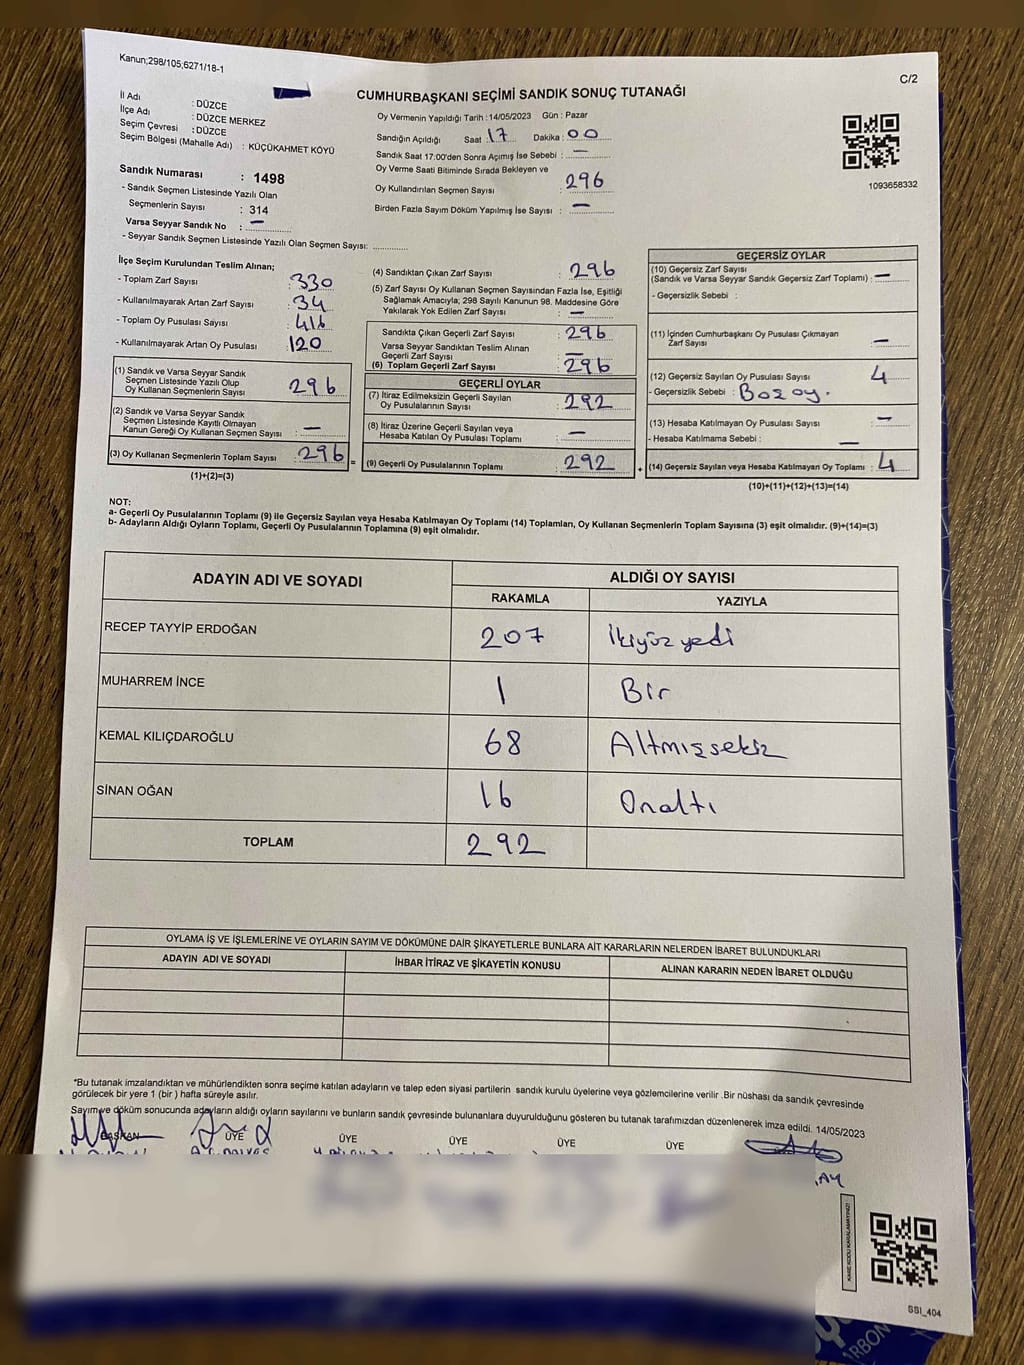 Kanun;298/105,6271/18-1
C/2
CUMHURBAŞKANI SEÇİMİ SANDIK SONUÇ TUTANAĞI
İl Adı : DÜZCE
İlçe Adı : DÜZCE MERKEZ
Seçim Çevresi : DÜZCE
Seçim Bölgesi (Mahalle Adı) : KÜÇÜKAHMET KÖYÜ
Oy Vermenin Yapıldığı Tarih : 14/05/2023 Gün : Pazar
Sandığın Açıldığı Saat : 17 Dakika : 00
Sandık Saat 17:00'den Sonra Açımış İse Sebebi : —
Oy Verme Saati Bitiminde Sırada Bekleyen ve
Oy Kullandırılan Seçmen Sayısı : 296
Birden Fazla Sayım Döküm Yapılmış İse Sayısı : —
1093658332
Sandık Numarası : 1498
- Sandık Seçmen Listesinde Yazılı Olan
Seçmenlerin Sayısı : 314
Varsa Seyyar Sandık No : —
- Seyyar Sandık Seçmen Listesinde Yazılı Olan Seçmen Sayısı:
İlçe Seçim Kurulundan Teslim Alınan;
- Toplam Zarf Sayısı : 330
- Kullanılmayarak Artan Zarf Sayısı : 34
- Toplam Oy Pusulası Sayısı : 416
- Kullanılmayarak Artan Oy Pusulası : 120
(1) Sandık ve Varsa Seyyar Sandık
Seçmen Listesinde Yazılı Olup
Oy Kullanan Seçmenlerin Sayısı : 296
(2) Sandık ve Varsa Seyyar Sandık
Seçmen Listesinde Kayıtlı Olmayan
Kanun Gereği Oy Kullanan Seçmen Sayısı : —
(3) Oy Kullanan Seçmenlerin Toplam Sayısı : 296 =
(1)+(2)=(3)
(4) Sandıktan Çıkan Zarf Sayısı : 296
(5) Zarf Sayısı Oy Kullanan Seçmen Sayısından Fazla İse, Eşitliği
Sağlamak Amacıyla; 298 Sayılı Kanunun 98. Maddesine Göre
Yakılarak Yok Edilen Zarf Sayısı : —
Sandıkta Çıkan Geçerli Zarf Sayısı : 296
Varsa Seyyar Sandıktan Teslim Alınan
Geçerli Zarf Sayısı : —
(6) Toplam Geçerli Zarf Sayısı : 296
GEÇERLİ OYLAR
(7) İtiraz Edilmeksizin Geçerli Sayılan
Oy Pusulalarının Sayısı : 292
(8) İtiraz Üzerine Geçerli Sayılan veya
Hesaba Katılan Oy Pusulası Toplamı : —
(9) Geçerli Oy Pusulalarının Toplamı : 292 +
GEÇERSİZ OYLAR
(10) Geçersiz Zarf Sayısı
(Sandık ve Varsa Seyyar Sandık Geçersiz Zarf Toplamı) : —
- Geçersizlik Sebebi :
(11) İçinden Cumhurbaşkanı Oy Pusulası Çıkmayan
Zarf Sayısı : —
(12) Geçersiz Sayılan Oy Pusulası Sayısı : 4
- Geçersizlik Sebebi : Bozoy.
(13) Hesaba Katılmayan Oy Pusulası Sayısı : —
- Hesaba Katılmama Sebebi : —
(14) Geçersiz Sayılan veya Hesaba Katılmayan Oy Toplamı : 4
(10)+(11)+(12)+(13)=(14)
NOT:
a- Geçerli Oy Pusulalarının Toplamı (9) ile Geçersiz Sayılan veya Hesaba Katılmayan Oy Toplamı (14) Toplamları, Oy Kullanan Seçmenlerin Toplam Sayısına (3) eşit olmalıdır. (9)+(14)=(3)
b- Adayların Aldığı Oyların Toplamı, Geçerli Oy Pusulalarının Toplamına (9) eşit olmalıdır.
ADAYIN ADI VE SOYADI ALDIĞI OY SAYISI
RAKAMLA YAZIYLA
RECEP TAYYİP ERDOĞAN 207 İkiyüz yedi
MUHARREM İNCE 1 Bir
KEMAL KILIÇDAROĞLU 68 Altmışsekiz
SİNAN OĞAN 16 Onaltı
TOPLAM 292
OYLAMA İŞ VE İŞLEMLERİNE VE OYLARIN SAYIM VE DÖKÜMÜNE DAİR ŞİKAYETLERLE BUNLARA AİT KARARLARIN NELERDEN İBARET BULUNDUKLARI
ADAYIN ADI VE SOYADI İHBAR İTİRAZ VE ŞİKAYETİN KONUSU ALINAN KARARIN NEDEN İBARET OLDUĞU
*Bu tutanak imzalandıktan ve mühürlendikten sonra seçime katılan adayların ve talep eden siyasi partilerin sandık kurulu üyelerine veya gözlemcilerine verilir .Bir nüshası da sandık çevresinde
görülecek bir yere 1 (bir ) hafta süreyle asılır.
Sayım ve döküm sonucunda adayların aldığı oyların sayılarını ve bunların sandık çevresinde bulunanlara duyurulduğunu gösteren bu tutanak tarafımızdan düzenlenerek imza edildi. 14/05/2023
BAŞKAN ÜYE ÜYE ÜYE ÜYE ÜYE
KARE KODU KARALAMAYINIZ!
SSI_404
ARBON